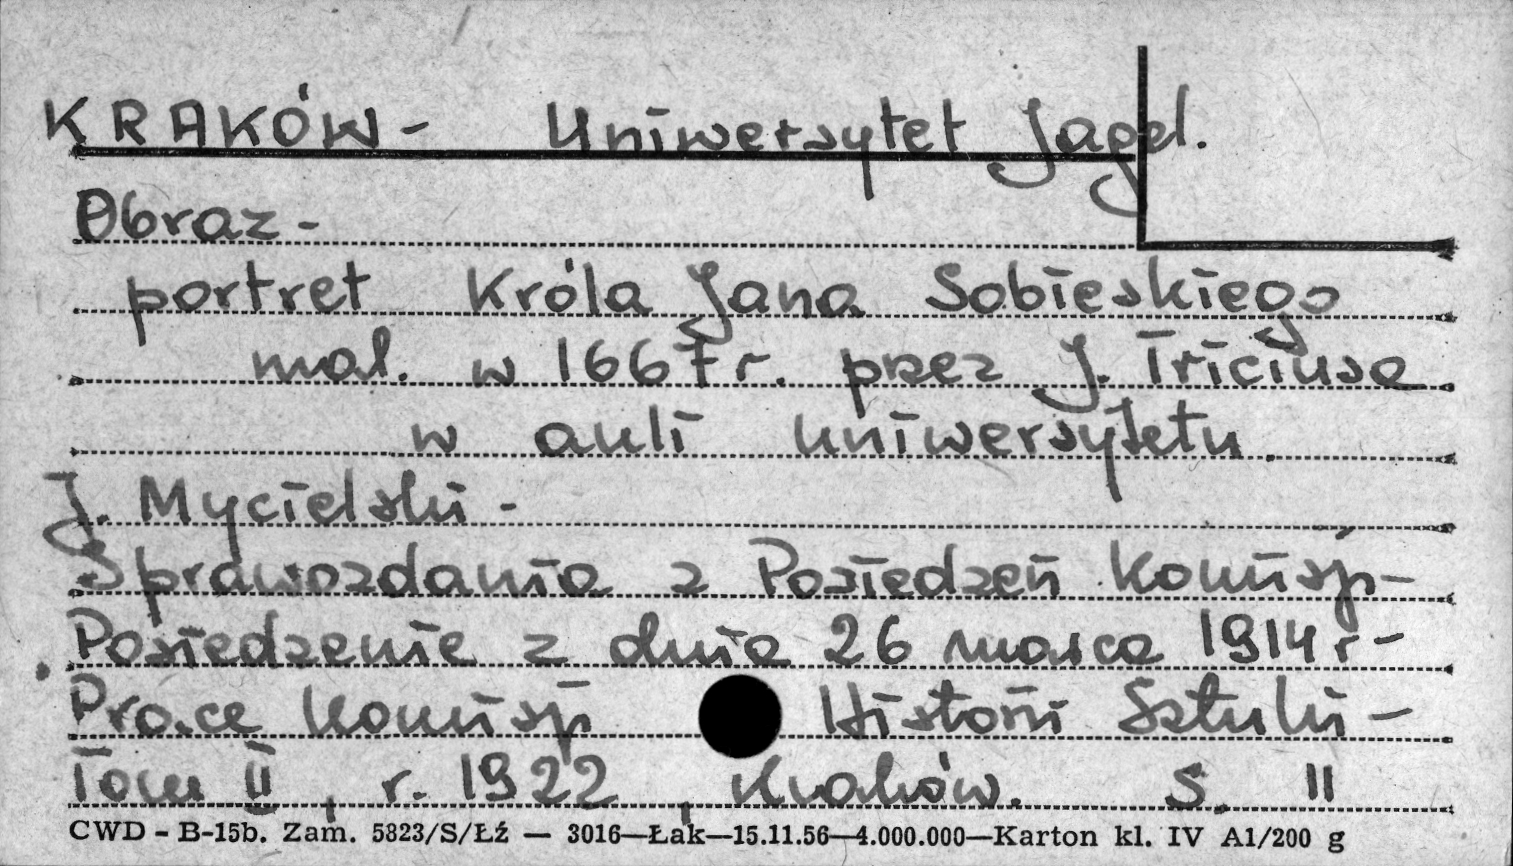 KRAKÓW - Uniwersytet Jagel.
Obraz -
portret Króla Jana Sobieskiego
mal. w 1667 r. przez J. Triciusa
w auli uniwersytetu
J. Mycielski -
Sprawozdania z Posiedzeń Komisji -
Posiedzenie z dnia 26 marca 1914 r -
Prace Komisji Historii Sztuki -
Tom II, r. 1922, Kraków. S. II
CWD - B-15b. Zam. 5823/S/Łź — 3016—Łak—15.11.56—4.000.000—Karton kl. IV A1/200 g